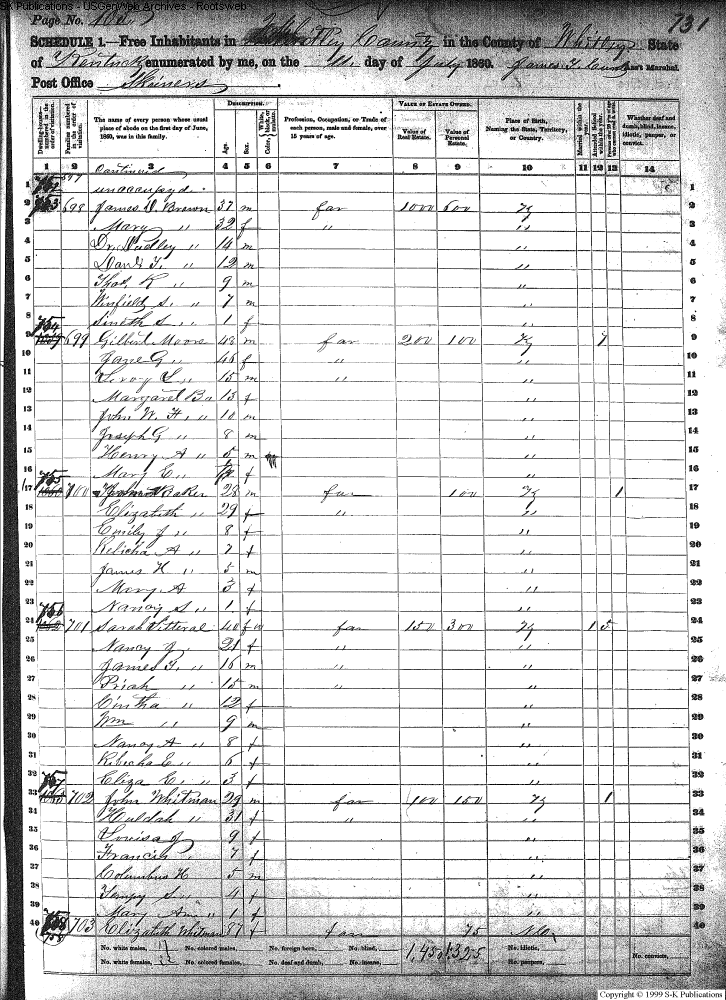 S-K Publications - USGenWeb Archives - Rootsweb
Page No. 102
731
SCHEDULE 1.—Free Inhabitants in Whitley County in the County of Whitley State
of Kentucky enumerated by me, on the day of July 1860. James T. Ass't Marshal.
Post Office
Dwelling-houses numbered in the order of visitation.
Families numbered in the order of visitation.
The name of every person whose usual place of abode on the first day of June, 1860, was in this family.
DESCRIPTION.
Age.
Sex.
Color, White, black, or mulatto.
Profession, Occupation, or Trade of each person, male and female, over 15 years of age.
VALUE OF ESTATE OWNED.
Value of Real Estate.
Value of Personal Estate.
Place of Birth, Naming the State, Territory, or Country.
Married within the year.
Attended School within the year.
Whether deaf and dumb, blind, insane, idiotic, pauper, or convict.
1 2 3 4 5 6 7 8 9 10 11 12 13 14
continued
1 697 unoccupyd 1
2 753 698 James D. Brown 37 m far 1000 600 Ky 2
3 Mary " 32 f " " 3
4 Dr. Dudley " 14 m " 4
5 David T. " 12 m " 5
6 Thos R " 9 m " 6
7 Winfield S. " 7 m " 7
8 S. " 1 f " 8
9 754 699 Gilbert Moore 48 m far 200 100 Ky 9
10 Jane G " 46 f " " 10
11 Leroy L " 15 m " " 11
12 Margaret Ba 13 f " 12
13 John W. H. " 10 m " 13
14 Joseph G " 8 m " 14
15 Henry A " 5 m " 15
16 Mary E. " f " 16
17 755 700 Baker 28 m far 100 Ky 1 17
18 Elizabeth " 29 f " " 18
19 Emily J " 8 f " 19
20 Rebicha A " 7 f " 20
21 James H " 5 m " 21
22 Mary A 3 f " 22
23 Nancy S " 1 f " 23
24 756 701 Sarah Litteral 40 f w far 150 300 Ky 1 5 24
25 Nancy J. 21 f " " 25
26 James T. " 16 m " " 26
27 " 15 m " " 27
28 Cintha " 12 f " 28
29 Wm " 9 m " 29
30 Nancy A " 8 f " 30
31 Ribicha E " 6 f " 31
32 Eliza E. " 3 f " 32
33 757 702 John Whitman 29 m far 100 150 Ky 1 33
34 Huldah " 31 f " " 34
35 Louisa J 9 f " 35
36 Francis " 7 f " 36
37 Columbus H 5 m " 37
38 S. " 4 f " 38
39 Mary Ann " 1 f " 39
40 758 703 Elizabeth Whitman 87 f far 75 40
No. white males, 17 No. colored males, No. foreign born, No. blind, 1,450 1,325 No. idiotic,
No. white females, 22 No. colored females, No. deaf and dumb, No. insane, No. paupers, No. convicts,
Copyright © 1999 S-K Publications